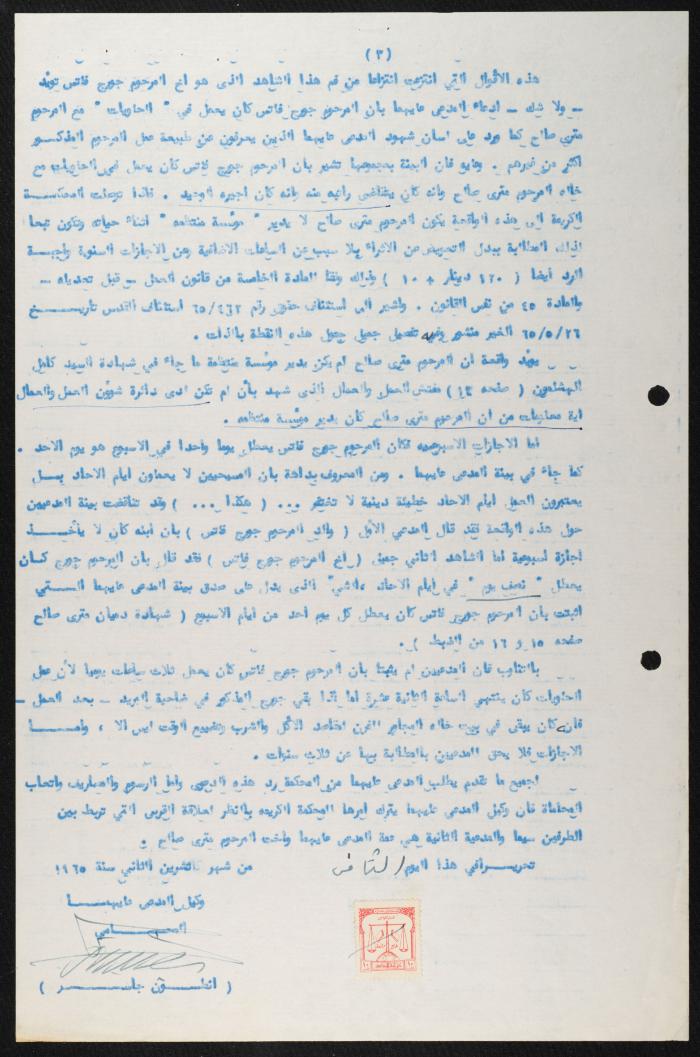 (٣)
هذه الاقوال التي انتزعت انتزاعا من فم هذا الشاهد الذى هو اخ المرحوم جورج فاتس تؤيد
ـ ولا شك ـ ادعاء المدعى عليهما بان المرحوم جورج فاتس كان يعمل في " الحلويات " مع المرحوم
مترى صالح كما ورد على لسان شهود المدعى عليهما الذين يعرفون عن طبيعة عمل المرحوم المذكور
اكثر من غيرهم . وعليه فان البينة بمجموعها تشير بان المرحوم جورج فاتس كان يعمل في الحلويات مع
خاله المرحوم مترى صالح وانه كان يتقاضى راتبه منه وانه كان اجيره الوحيد . فاذا توصلت المحكمــة
الكريمة الى هذه الواقعة يكون المرحوم مترى صالح لا يدير " مؤسسة منتظمه " اثناء حياته وتكون تبعا
لذلك المطالبة ببدل التعويض عن الاقراء بلا سبب عن الساعات الاضافية وعن الاجازات السنوية واجبــة
الرد ايضا ( ١٢٠ دينار + ١٠ ) وذلك وفقا للمادة الخامسة من قانون العمل ـ قبل تعديله ـ
والمادة ٤٥ من نفس القانون . واشير الى استئناف حقوق رقم ٦٥/٤٦٢ استئناف القدس تاريــــخ
٦٥/٥/٢٦ الغير منشور وفيه تفصيل جميل حول هذه النقطة بالذات .
يؤيد واقعة ان المرحوم مترى صالح لم يكن يدير مؤسسة منتظمة ما جاء في شهادة السيد كامل
( صفحه ١٤ ) مفتش العمل والعمال الذى شهد بأن لم تكن لدى دائرة شؤون العمل والعمال
اية معلومات من ان المرحوم مترى صالح كان يدير مؤسسة منتظمه .
اما الاجازات الاسبوعيه فكان المرحوم جورج فاتس يعطل يوما واحدا في الاسبوع هو يوم الاحد .
كما جاء في بينة المدعى عليهما . ومن المعروف بداهة بان المسيحيين لا يعملون ايام الاحاد بــل
يعتبرون العمل ايام الاحاد خطيئة دينية لا تغتفر ... ( هكذا ... ) وقد تناقضت بينة المدعيين
حول هذه الواقعة فقد قال المدعي الاول ( والد المرحوم جورج فاتس ) بان ابنه كان لا يأخـــذ
اجازة اسبوعية اما الشاهد الثاني جميل ( اخ المرحوم جورج فاتس ) فقد قال بان المرحوم جورج كــان
يعطل " نصف يوم " في ايام الاحاد . الشيء الذى يدل على صدق بينة المدعى عليهما الـــتي
اثبتت بان المرحوم جورج فاتس كان يعطل كل يوم احد من ايام الاسبوع ( شهادة دميان مترى صالح
صفحه ١٥ و ١٦ من الضبط ) .
بالتناوب فان المدعيين لم يثبتا بان المرحوم جورج فاتس كان يعمل ثلاث ساعات يوميا لأن عمل
الحلويات كان ينتهي الساعة الثانية عشرة اما اذا بقي جورج المذكور في ضاحية البريد ـ بعد العمل ـ
فانه كان يبقى في بيت خاله المجاور للفرن لمقاصد الأكل والشرب وتضييع الوقت ليس الا ، وامــــا
الاجازات فلا يحق للمدعيين بالمطالبة بها عن ثلاث سنوات .
لجميع ما تقدم يطلب المدعى عليهما من المحكمة رد هذه الدعوى واما الرسوم والمصاريف واتعاب
المحاماة فان وكيل المدعى عليهما يترك امرها للمحكمة الكريمه بالنظر لعلاقة القربى التي تربط بين
الطرفين سيما والمدعية الثانية هي عمة المدعى عليهما واخت المرحوم مترى صالح .
تحريــرا في هذا اليوم الثامن من شهر تشرين الثاني سنة ١٩٦٥
وكيل المدعى عليهمـــا
المحــــامي
( انطــون جاســــر )
١٠ ١٠